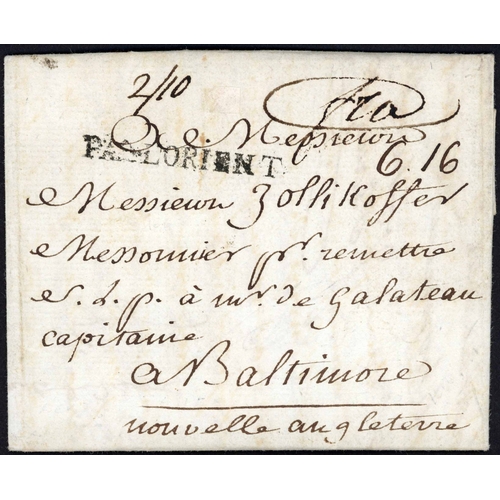 2/10
fco
A Messieurs
PAR LORIENT
6.16
Messieurs Zollikoffer
Messonnier pr. remettre
S. L. p. à mr. de Galateau
capitaine
a Baltimore
nouvelle angleterre